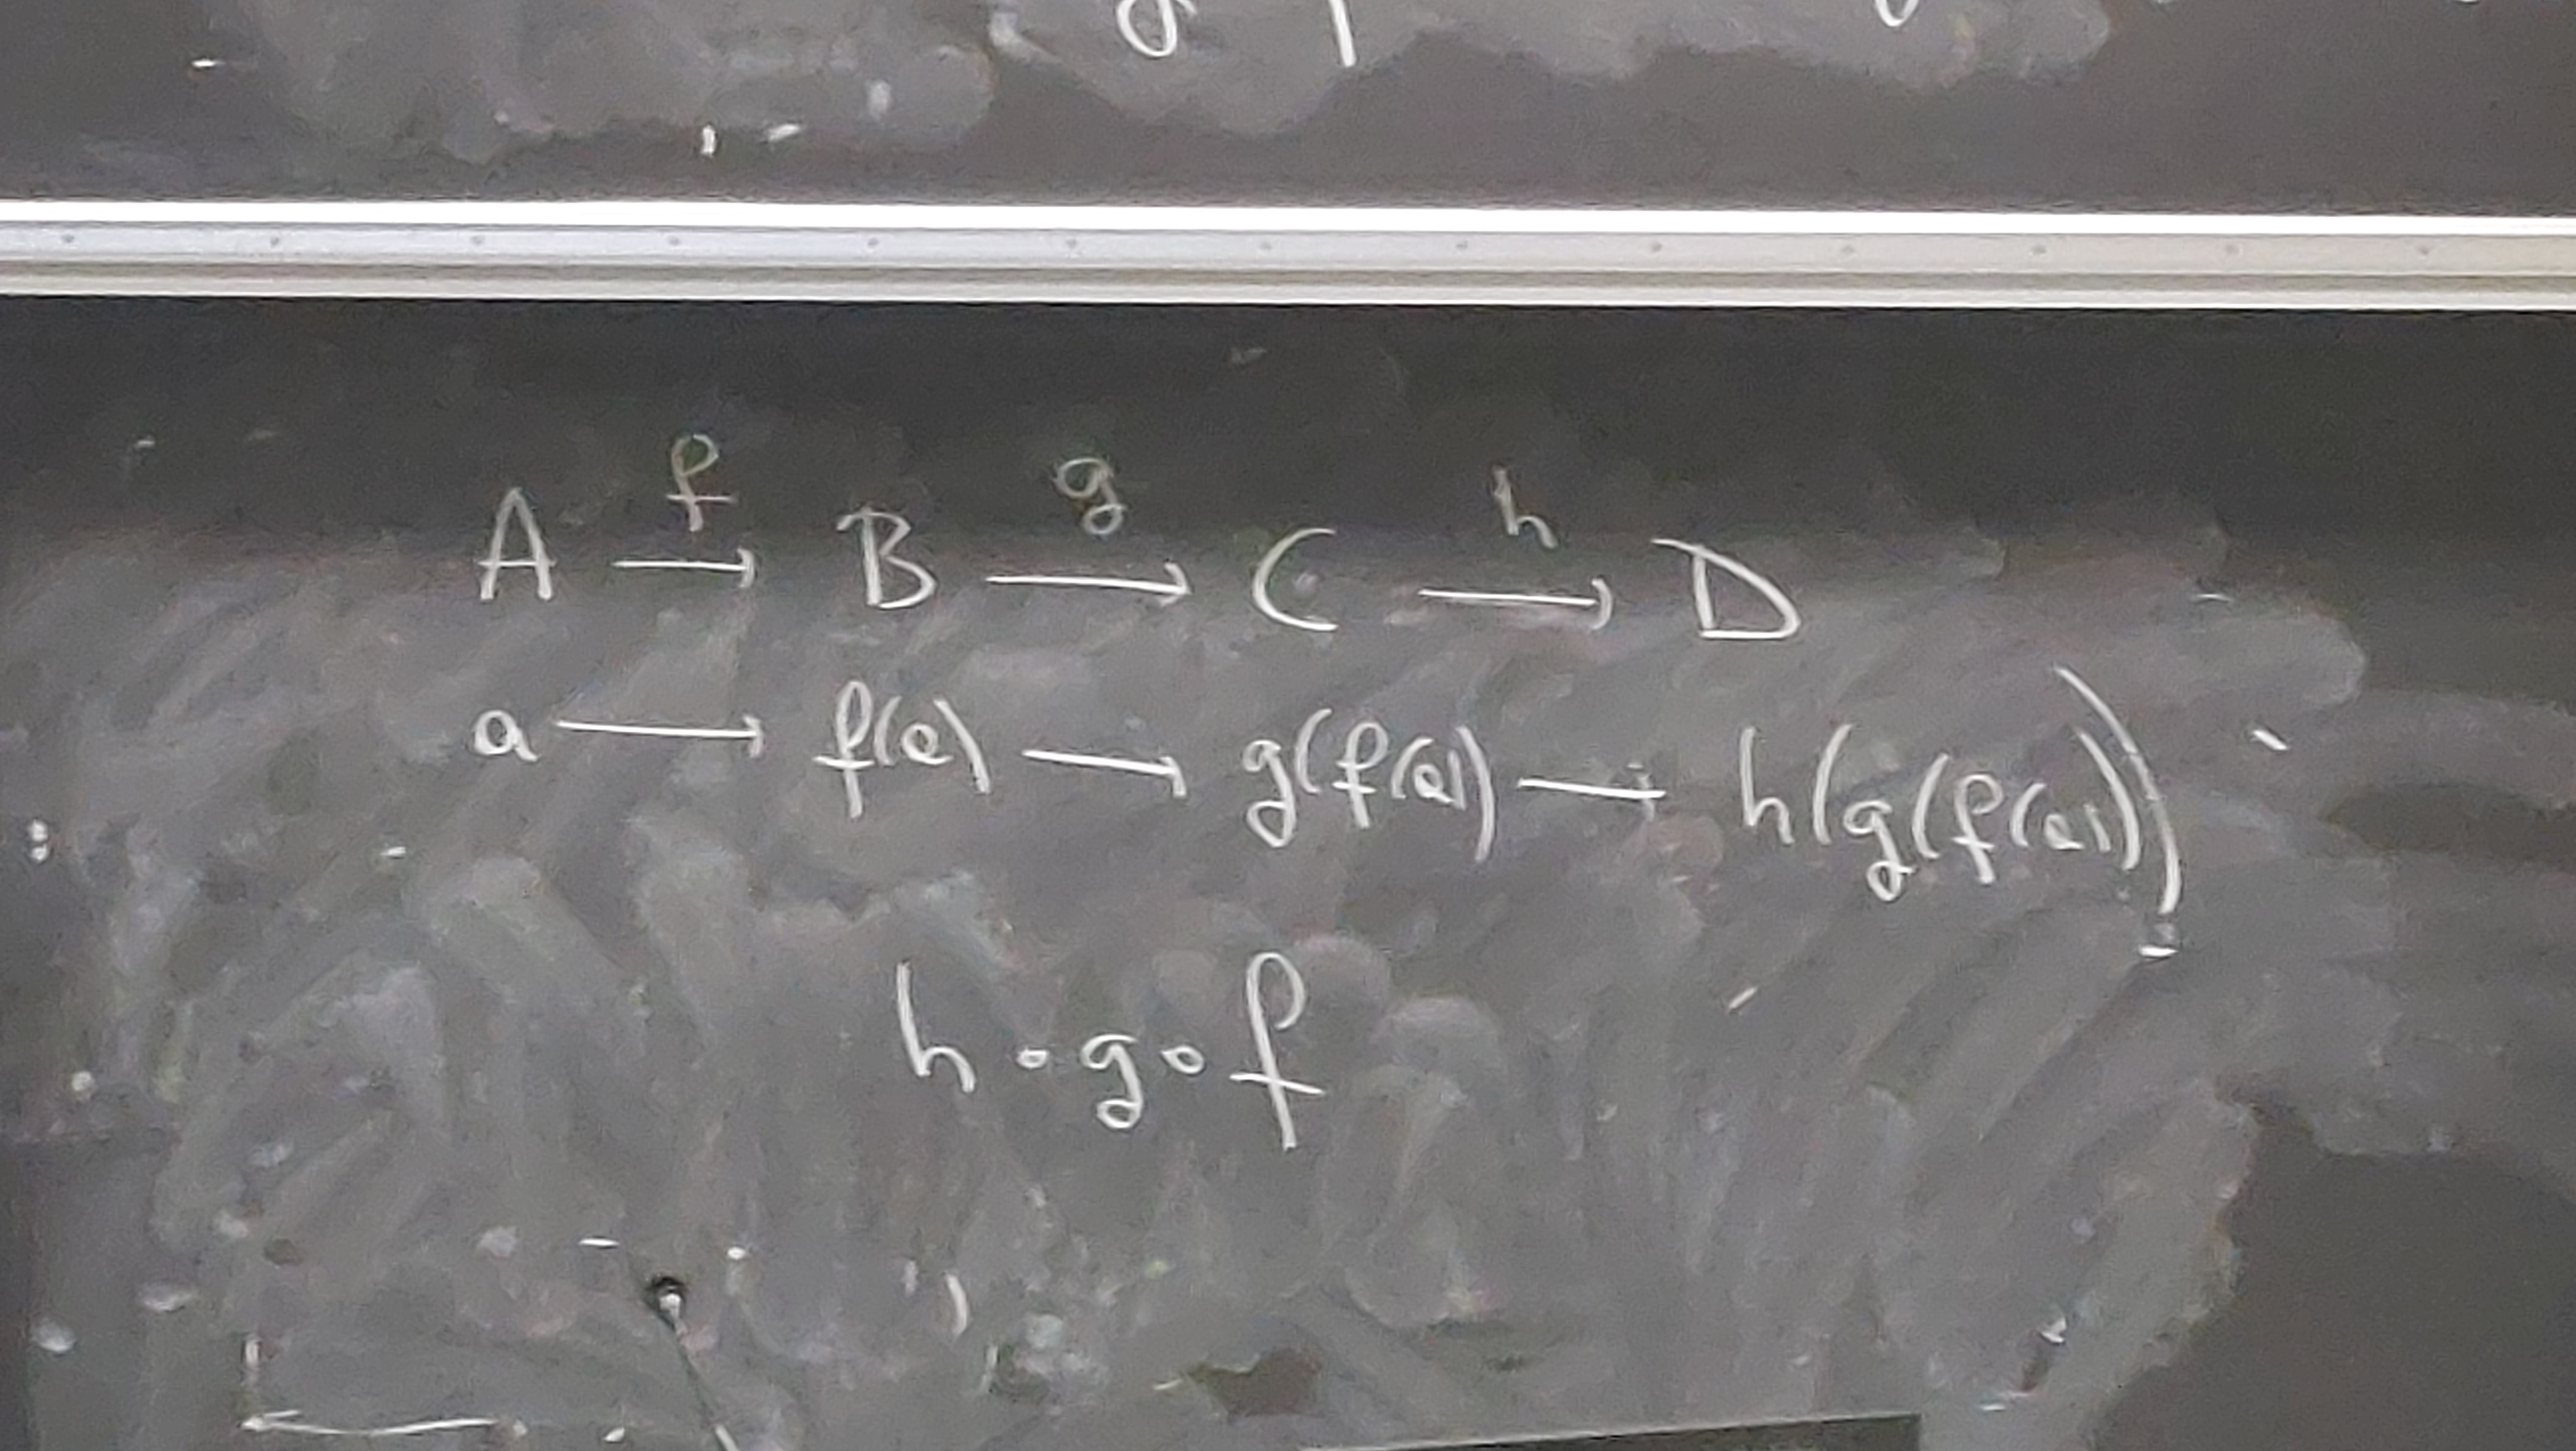 A —f→ B —g→ C —h→ D
a → f(a) → g(f(a)) → h(g(f(a)))
h∘g∘f